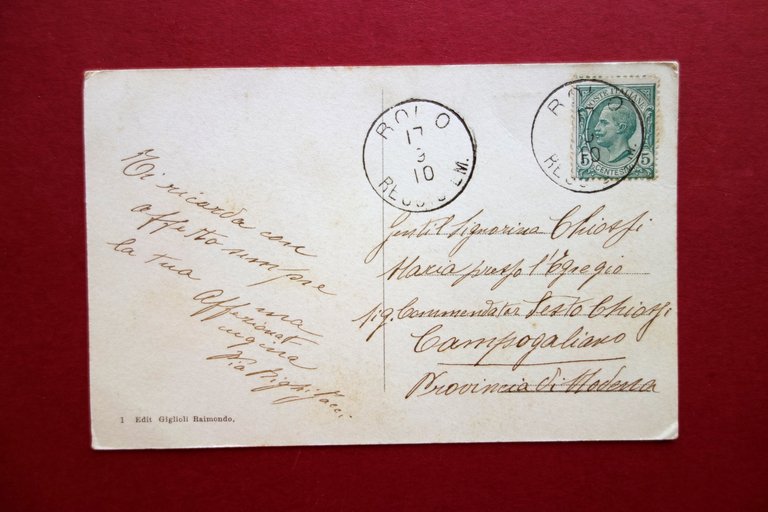 ROLO
17
3
10
REGGIO EM.
ROLO
10
REGG
POSTE ITALIANE
5 5
CENTESIMI
Ti ricorda con
affetto sempre
la tua aff.ma
Affezionat
cugina
Pia Bigli
Gentil Signorina Chiossi
Maria presso l'Egregio
Sig. Commendator Sesto Chiossi
Campogaliano
Provincia di Modena
1 Edit Giglioli Raimondo,